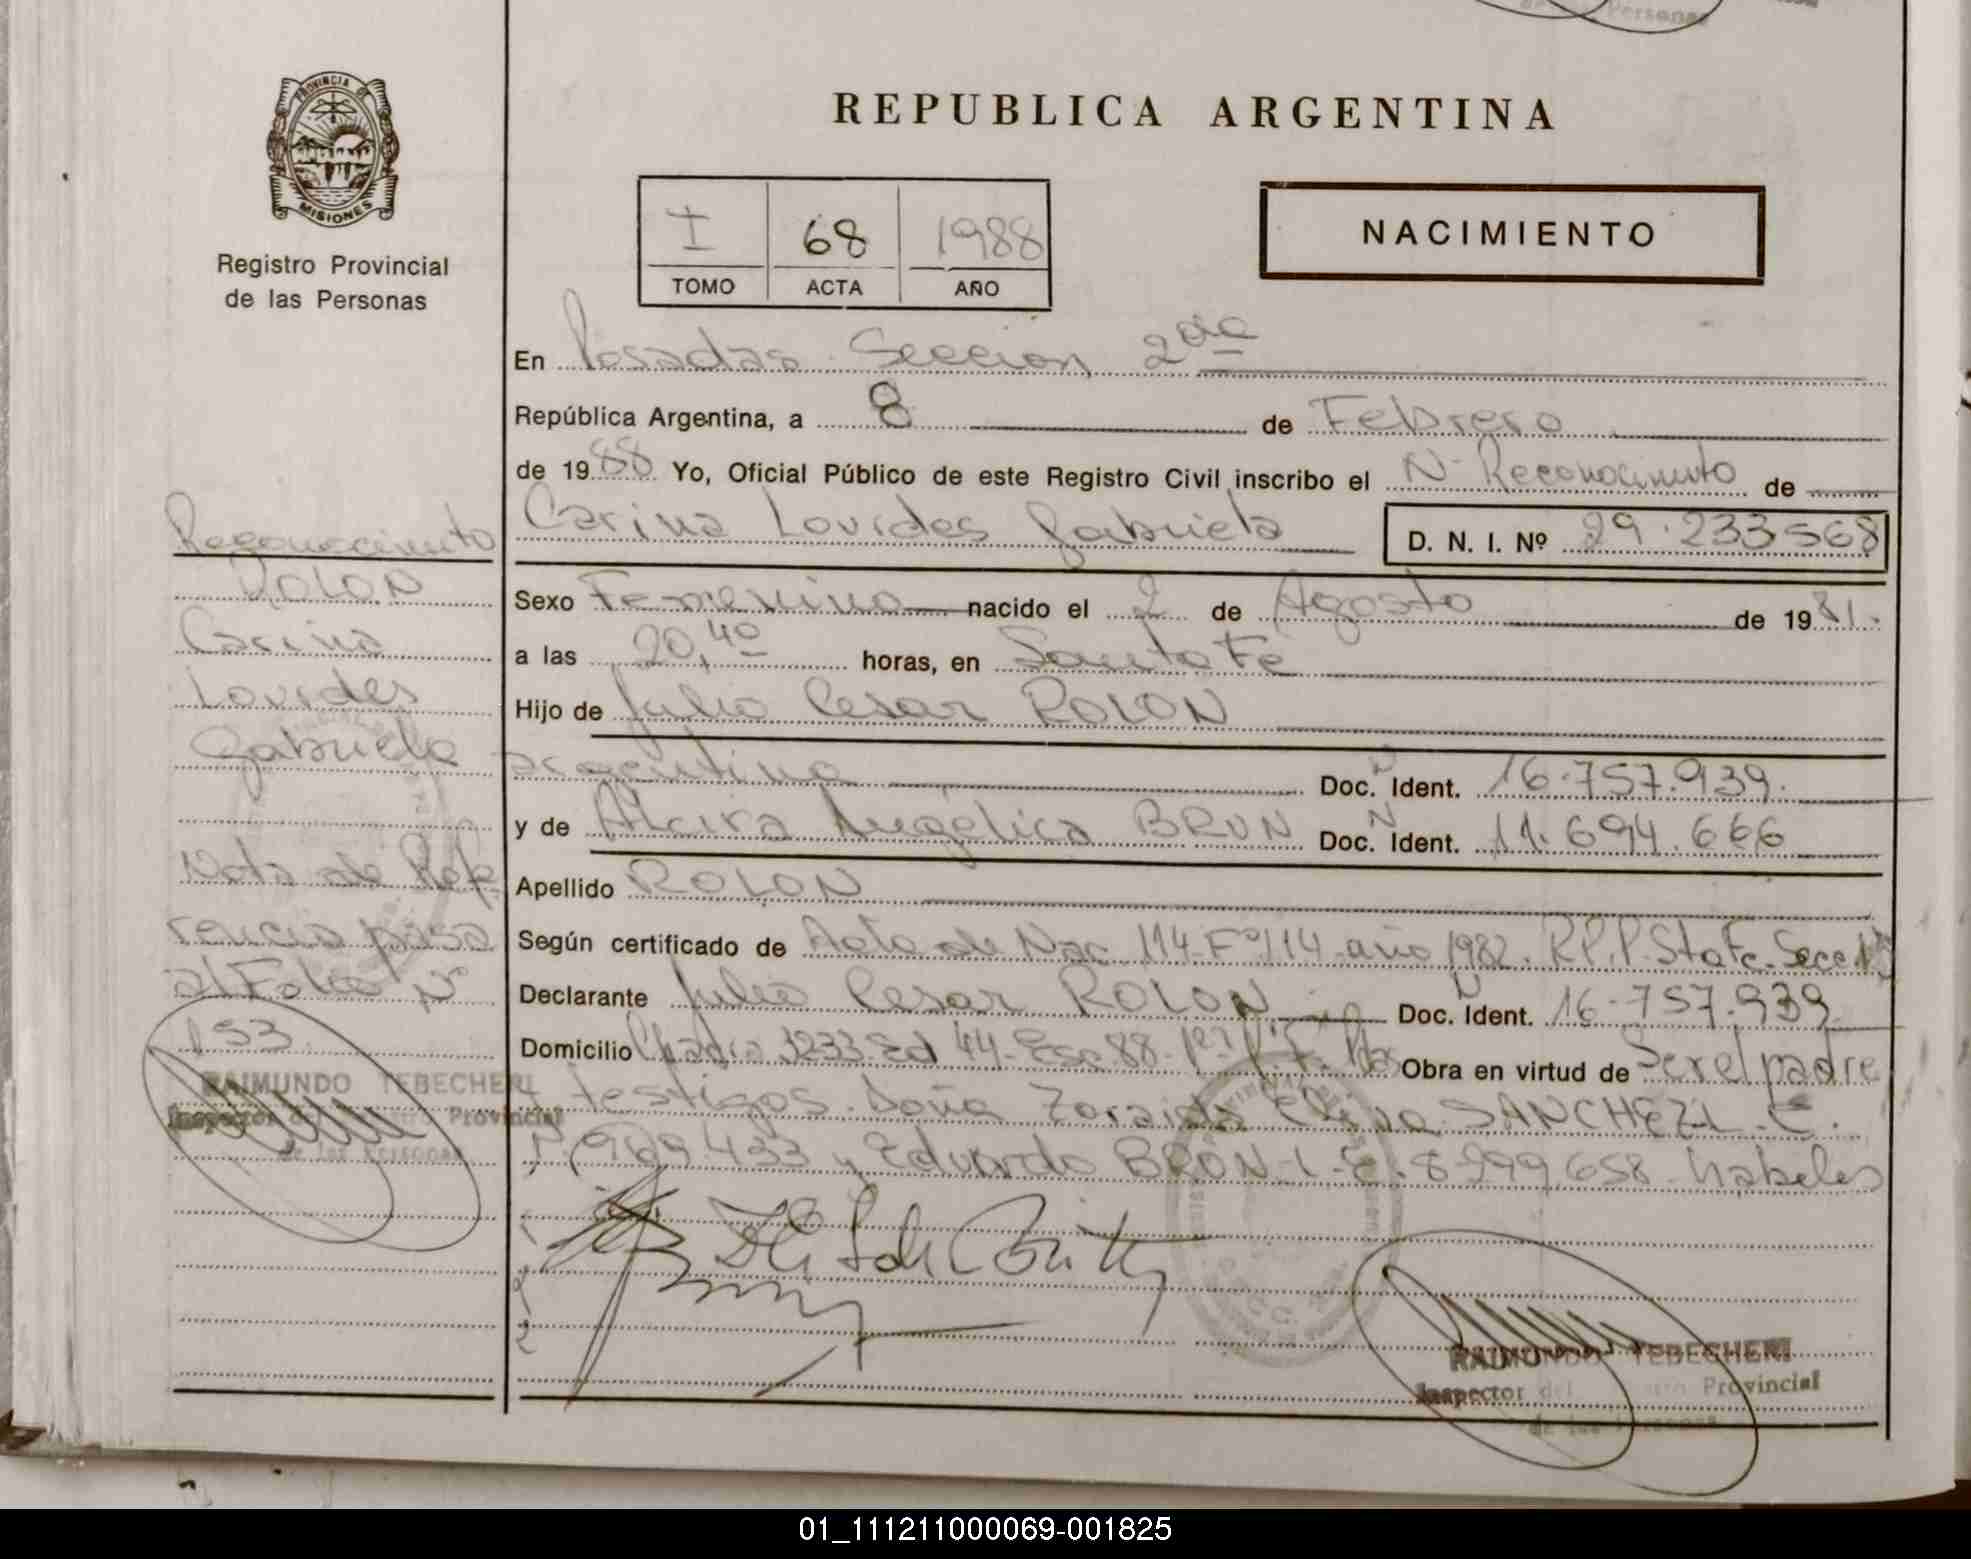 Personas
PROVINCIA DE
MISIONES
Registro Provincial
de las Personas
REPUBLICA ARGENTINA
I 68 1988
TOMO ACTA AÑO
NACIMIENTO
En Posadas Seccion 2da
República Argentina, a 8 de Febrero
de 1988 Yo, Oficial Público de este Registro Civil inscribo el N- Reconocimiento de
Carina Lourdes Gabriela D. N. I. Nº 29.233568
Sexo Femenino nacido el 2 de Agosto de 1981.
a las 20,40 horas, en Santa Fe
Hijo de Julio Cesar ROLON
argentino Doc. Ident. 16.757.939.
y de Alcira Angélica BRUN Doc. Ident. 11.694.666
Apellido ROLON
Según certificado de Acta de Nac. 114-Fº114-año 1982. R.P.P. Sta Fe. Secc
Declarante Julio Cesar ROLON Doc. Ident. 16-757.939
Domicilio Chacra 3233 Ed 44-Esc 88- Obra en virtud de Ser el padre
testigos. Doña Zoraida SANCHEZ L.C.
969.433 y Eduardo BRON-L.E. 8.299.658 habeles
Reconocimiento
ROLON
Carina
Lourdes
Gabriela
Nota de Refe
rencia pasa
al Folio Nº
153
RAIMUNDO TEBECHERI
Inspector del Registro Provincial
de las Personas
RAIMUNDO TEBECHERI
Inspector del Registro Provincial
de las Personas
01_111211000069-001825